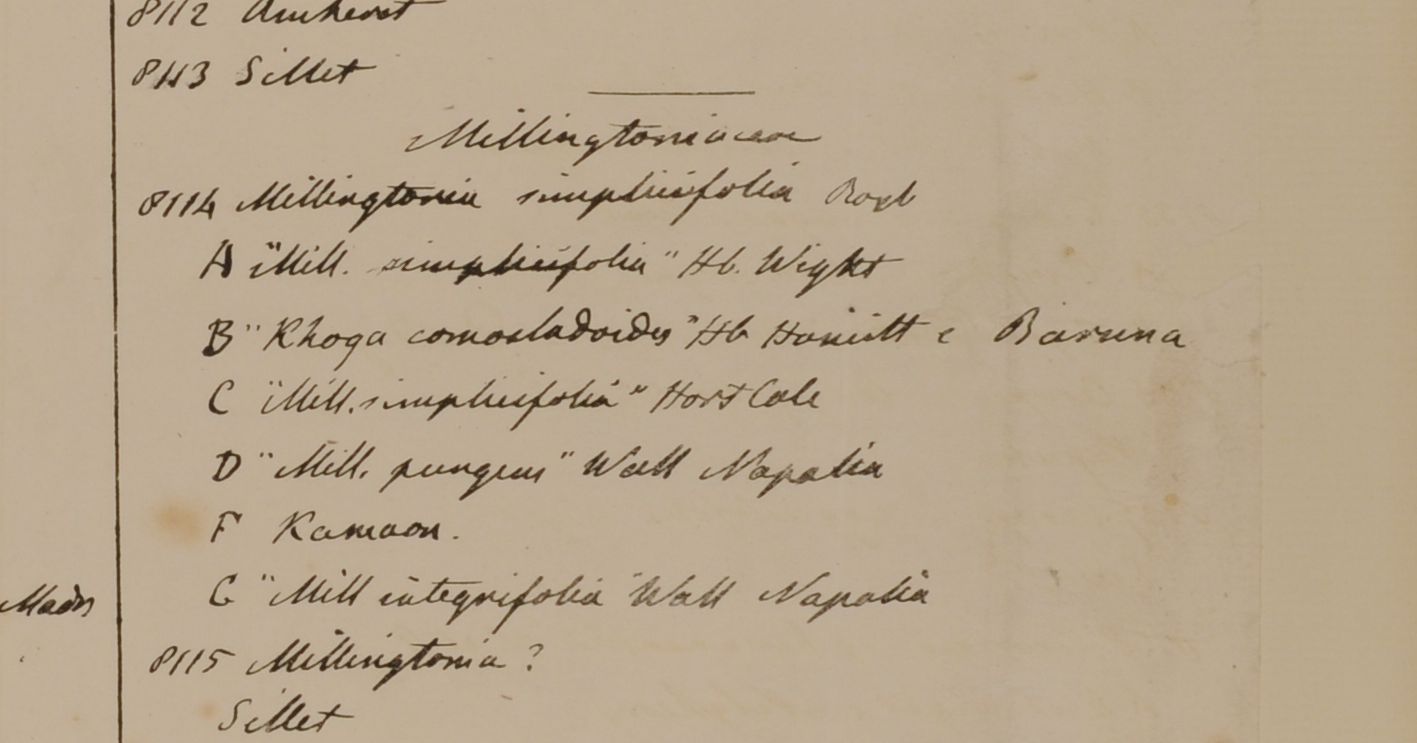 8112 Amherst
8113 Sillet
Millingtoniaceae
8114 Millingtonia simplicifolia Roxb
A "Mill. simplicifolia" Hb. Wight
B "Rhoga comocladoides" Hb Hamilt e Baruna
C "Mill. simplicifolia" Hort Calc
D "Mill. pungens" Wall Napalia
F Kamaon.
G "Mill integrifolia" Wall Napalia
Madrs
8115 Millingtonia?
Sillet